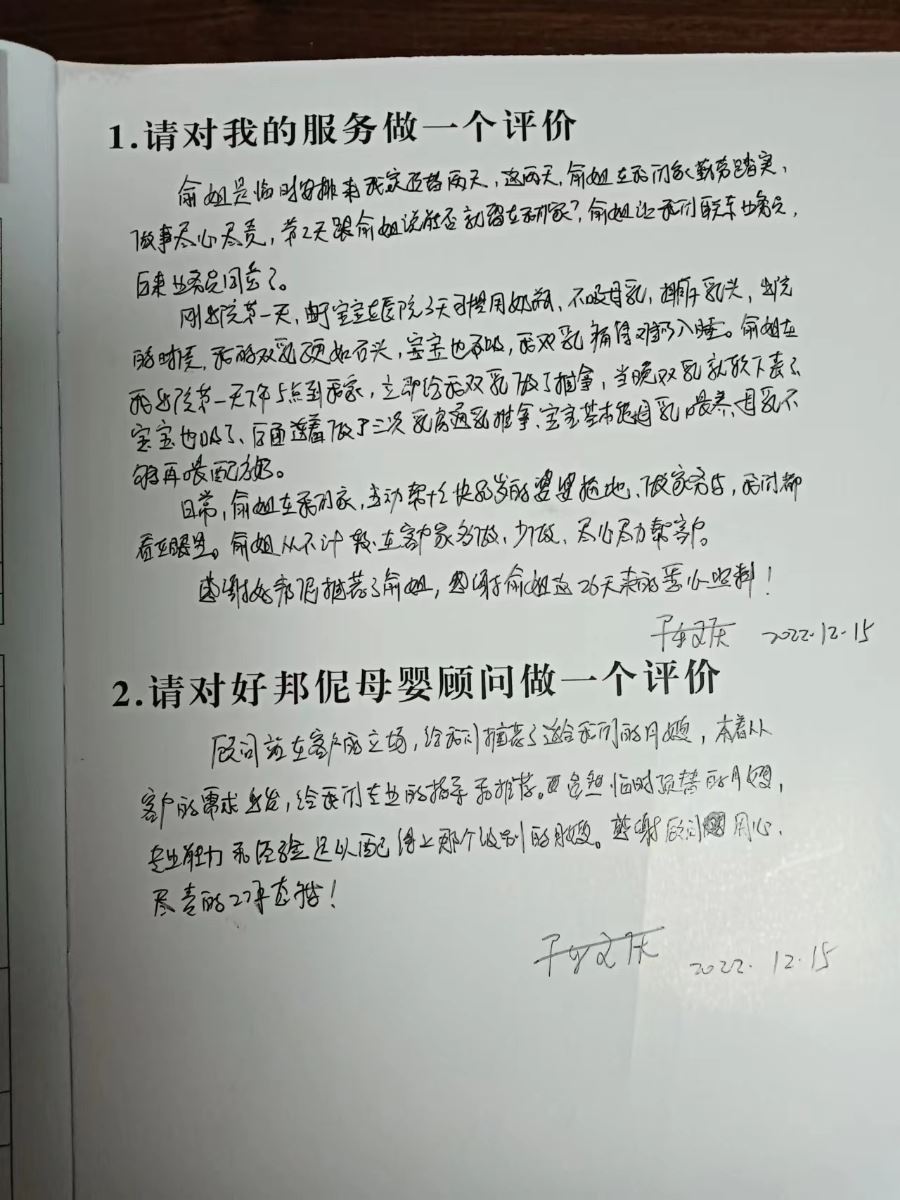 1.请对我的服务做一个评价
俞姐是临时安排来我家顶替两天，这两天，俞姐在我们家勤劳踏实，
做事尽心尽责，第2天跟俞姐说能否就留在我们家？俞姐让我们联系业务员，
后来业务员同意了。
刚出院第一天，由于宝宝在医院3天习惯用奶瓶，不吸母乳，排斥乳头，出院
的时候，我的双乳硬如石头，宝宝也不吸，我双乳痛得难以入睡。俞姐在
我出院第一天下午5点到我家，立即给我双乳做了推拿，当晚双乳就软下来了
宝宝也吸了、后面连着做了三次乳房通乳推拿、宝宝基本能母乳喂养、母乳不
够再喂配方奶。
日常，俞姐在我们家，主动帮快的婆婆拖地、做家务等，我们都
看在眼里。俞姐从不计较在客户家多做、少做、尽心尽力帮客户。
感谢好邦伲推荐了俞姐，感谢俞姐这26天来的悉心照料！
2022.12.15
2.请对好邦伲母婴顾问做一个评价
顾问站在客户的立场，给我们推荐了适合我们的月嫂，本着从
客户的需求出发，给我们专业的指导和推荐。虽然临时顶替的月嫂，
专业能力和经验足以配得上那个级别的月嫂。感谢顾问用心、
尽责的工作态度！
2022.12.15